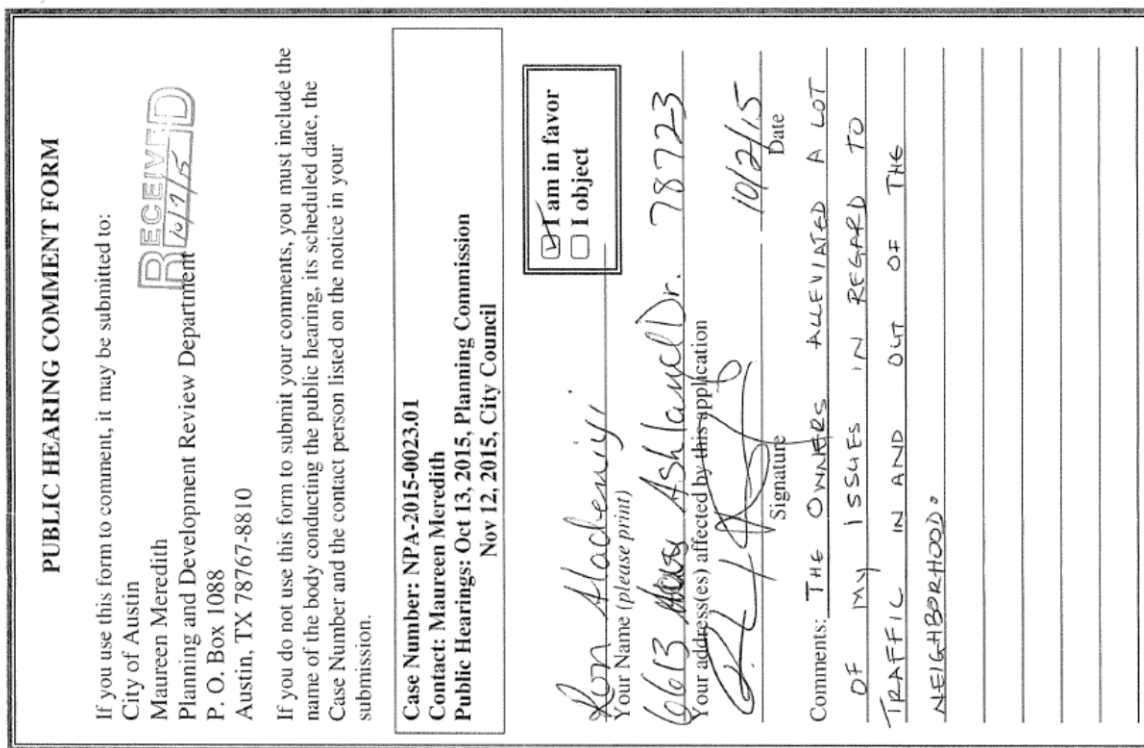 PUBLIC HEARING COMMENT FORM
If you use this form to comment, it may be submitted to:
City of Austin
Maureen Meredith
Planning and Development Review Department
P. O. Box 1088
Austin, TX 78767-8810
RECEIVED
10/7/15
If you do not use this form to submit your comments, you must include the
name of the body conducting the public hearing, its scheduled date, the
Case Number and the contact person listed on the notice in your
submission.
Case Number: NPA-2015-0023.01
Contact: Maureen Meredith
Public Hearings: Oct 13, 2015, Planning Commission
Nov 12, 2015, City Council
Ron
Your Name (please print)
I am in favor
I object
6613 Ashland Dr. 78723
Your address(es) affected by this application
10/2/15
Signature Date
Comments: THE OWNERS ALLEVIATED A LOT
OF MY ISSUES IN REGARD TO
TRAFFIC IN AND OUT OF THE
NEIGHBORHOOD.